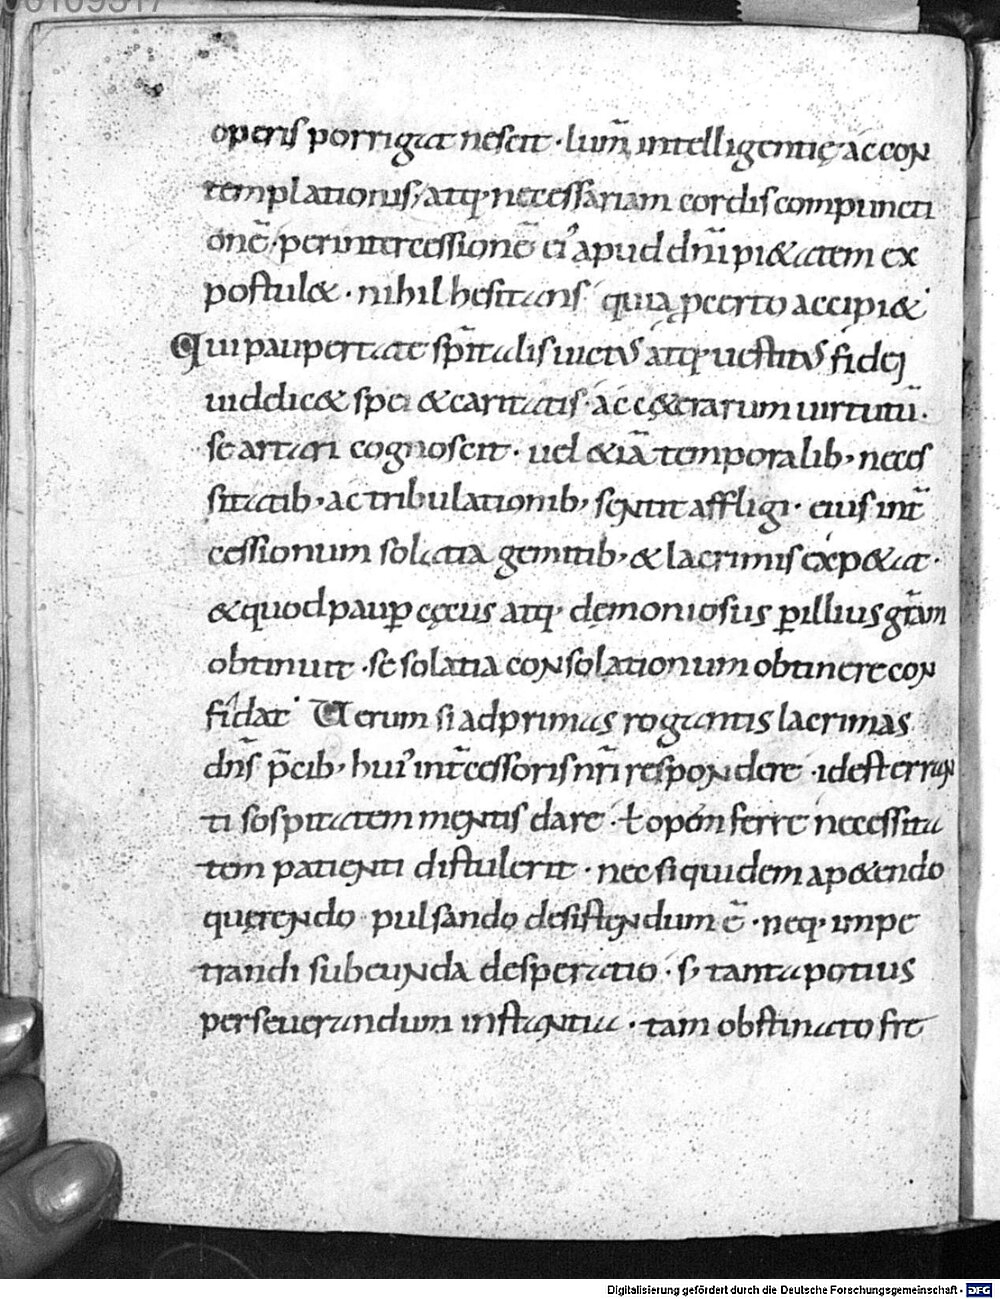 operis porrigat nescit · lum̄ intelligentię ac con
templationis, atq; necessariam cordis compuncti
onē · per intercessionē ei' apud dn̄i pi&atem ex
postul& · nihil hesitans quia ꝓ certo accipi&
Qui paupertate spr̄italis uictus atq; uestitus fidei
uidelic& spei & caritatis · ac c&erarum uirtutū ·
se artari cognoscit · uel &iā temporalib; neces
sitatib; ac tribulationib; sentit affligi · eius int̄
cessionum solatia gemitib; & lacrimis exp&at ·
& quod paup̄ cęcus atq; dęmoniosus p̱ illius gr̄am
obtinuit · se solatia consolationum obtinere con
fidat · Verum si ad primas rogantis lacrimas
dn̄s p̄cib; hui' int̄cessoris nr̄i respondere · id est erran
ti sospitatem mentis dare · ł opem ferre necessita
tem patienti distulerit · nec si quidem a p&endo
querendo pulsando desistendum ē · neq; impe
trandi subeunda desperatio · s; tanta potius
perseuerandum instantia · tam obstinato fre
06109317
Digitalisierung gefördert durch die Deutsche Forschungsgemeinschaft - DFG